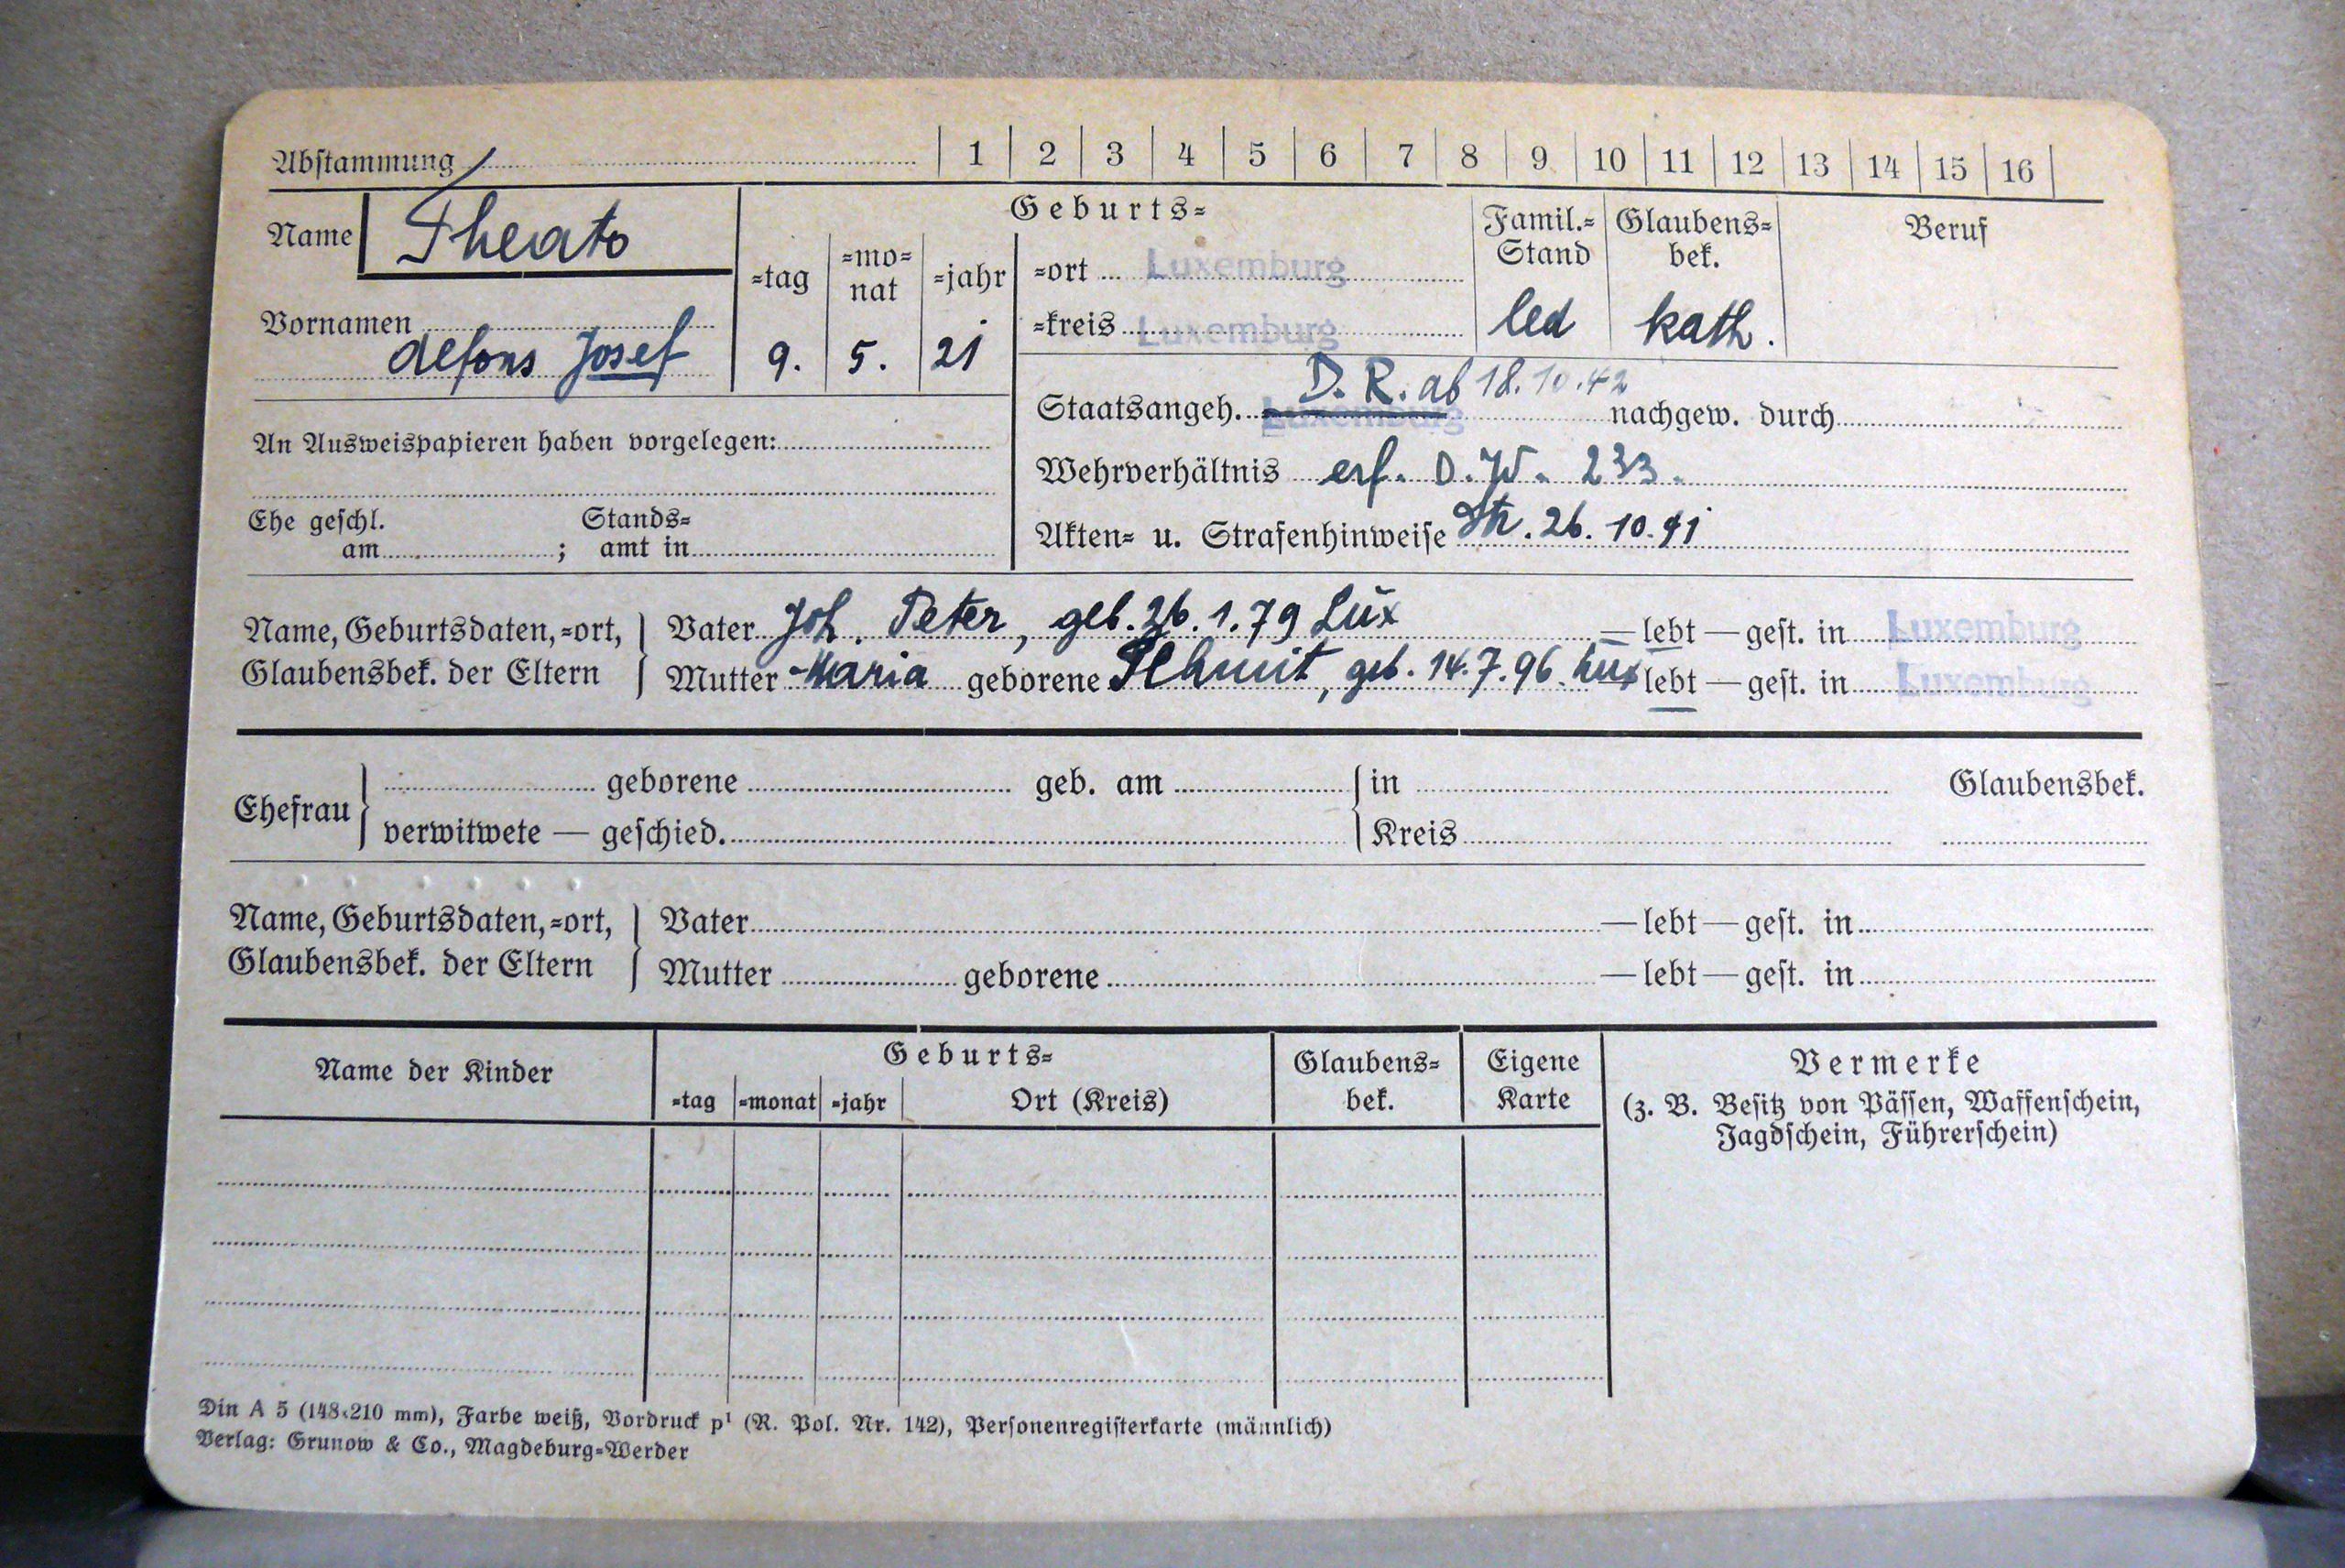 Abstammung 1 2 3 4 5 6 7 8 9 10 11 12 13 14 15 16
Name Theato
Vornamen
Alfons Josef
Geburts=
=tag =mo=nat =jahr
9. 5. 21
=ort Luxemburg
=kreis Luxemburg
Famil.=Stand
led
Glaubens=bek.
kath.
Beruf
An Ausweispapieren haben vorgelegen:
Ehe geschl. Stands=
am ; amt in
D. R. ab 18.10.42
Staatsangeh. Luxemburg nachgew. durch
Wehrverhältnis erf. D.W. 233.
Akten= u. Strafenhinweise 26.10.41
Name, Geburtsdaten,=ort, Vater Joh. Peter, geb. 26.1.79 Lux — lebt — gest. in Luxemburg
Glaubensbek. der Eltern Mutter Maria geborene Schmit, geb. 14.7.96 Lux — lebt — gest. in Luxemburg
Ehefrau
geborene geb. am in Glaubensbek.
verwitwete — geschied. Kreis
Name, Geburtsdaten,=ort, Vater — lebt — gest. in
Glaubensbek. der Eltern Mutter geborene — lebt — gest. in
Name der Kinder
Geburts=
=tag =monat =jahr Ort (Kreis)
Glaubens=
bek.
Eigene
Karte
Vermerke
(z. B. Besitz von Pässen, Waffenschein,
Jagdschein, Führerschein)
Din A 5 (148×210 mm), Farbe weiß, Vordruck p¹ (R. Pol. Nr. 142), Personenregisterkarte (männlich)
Verlag: Grunow & Co., Magdeburg=Werder